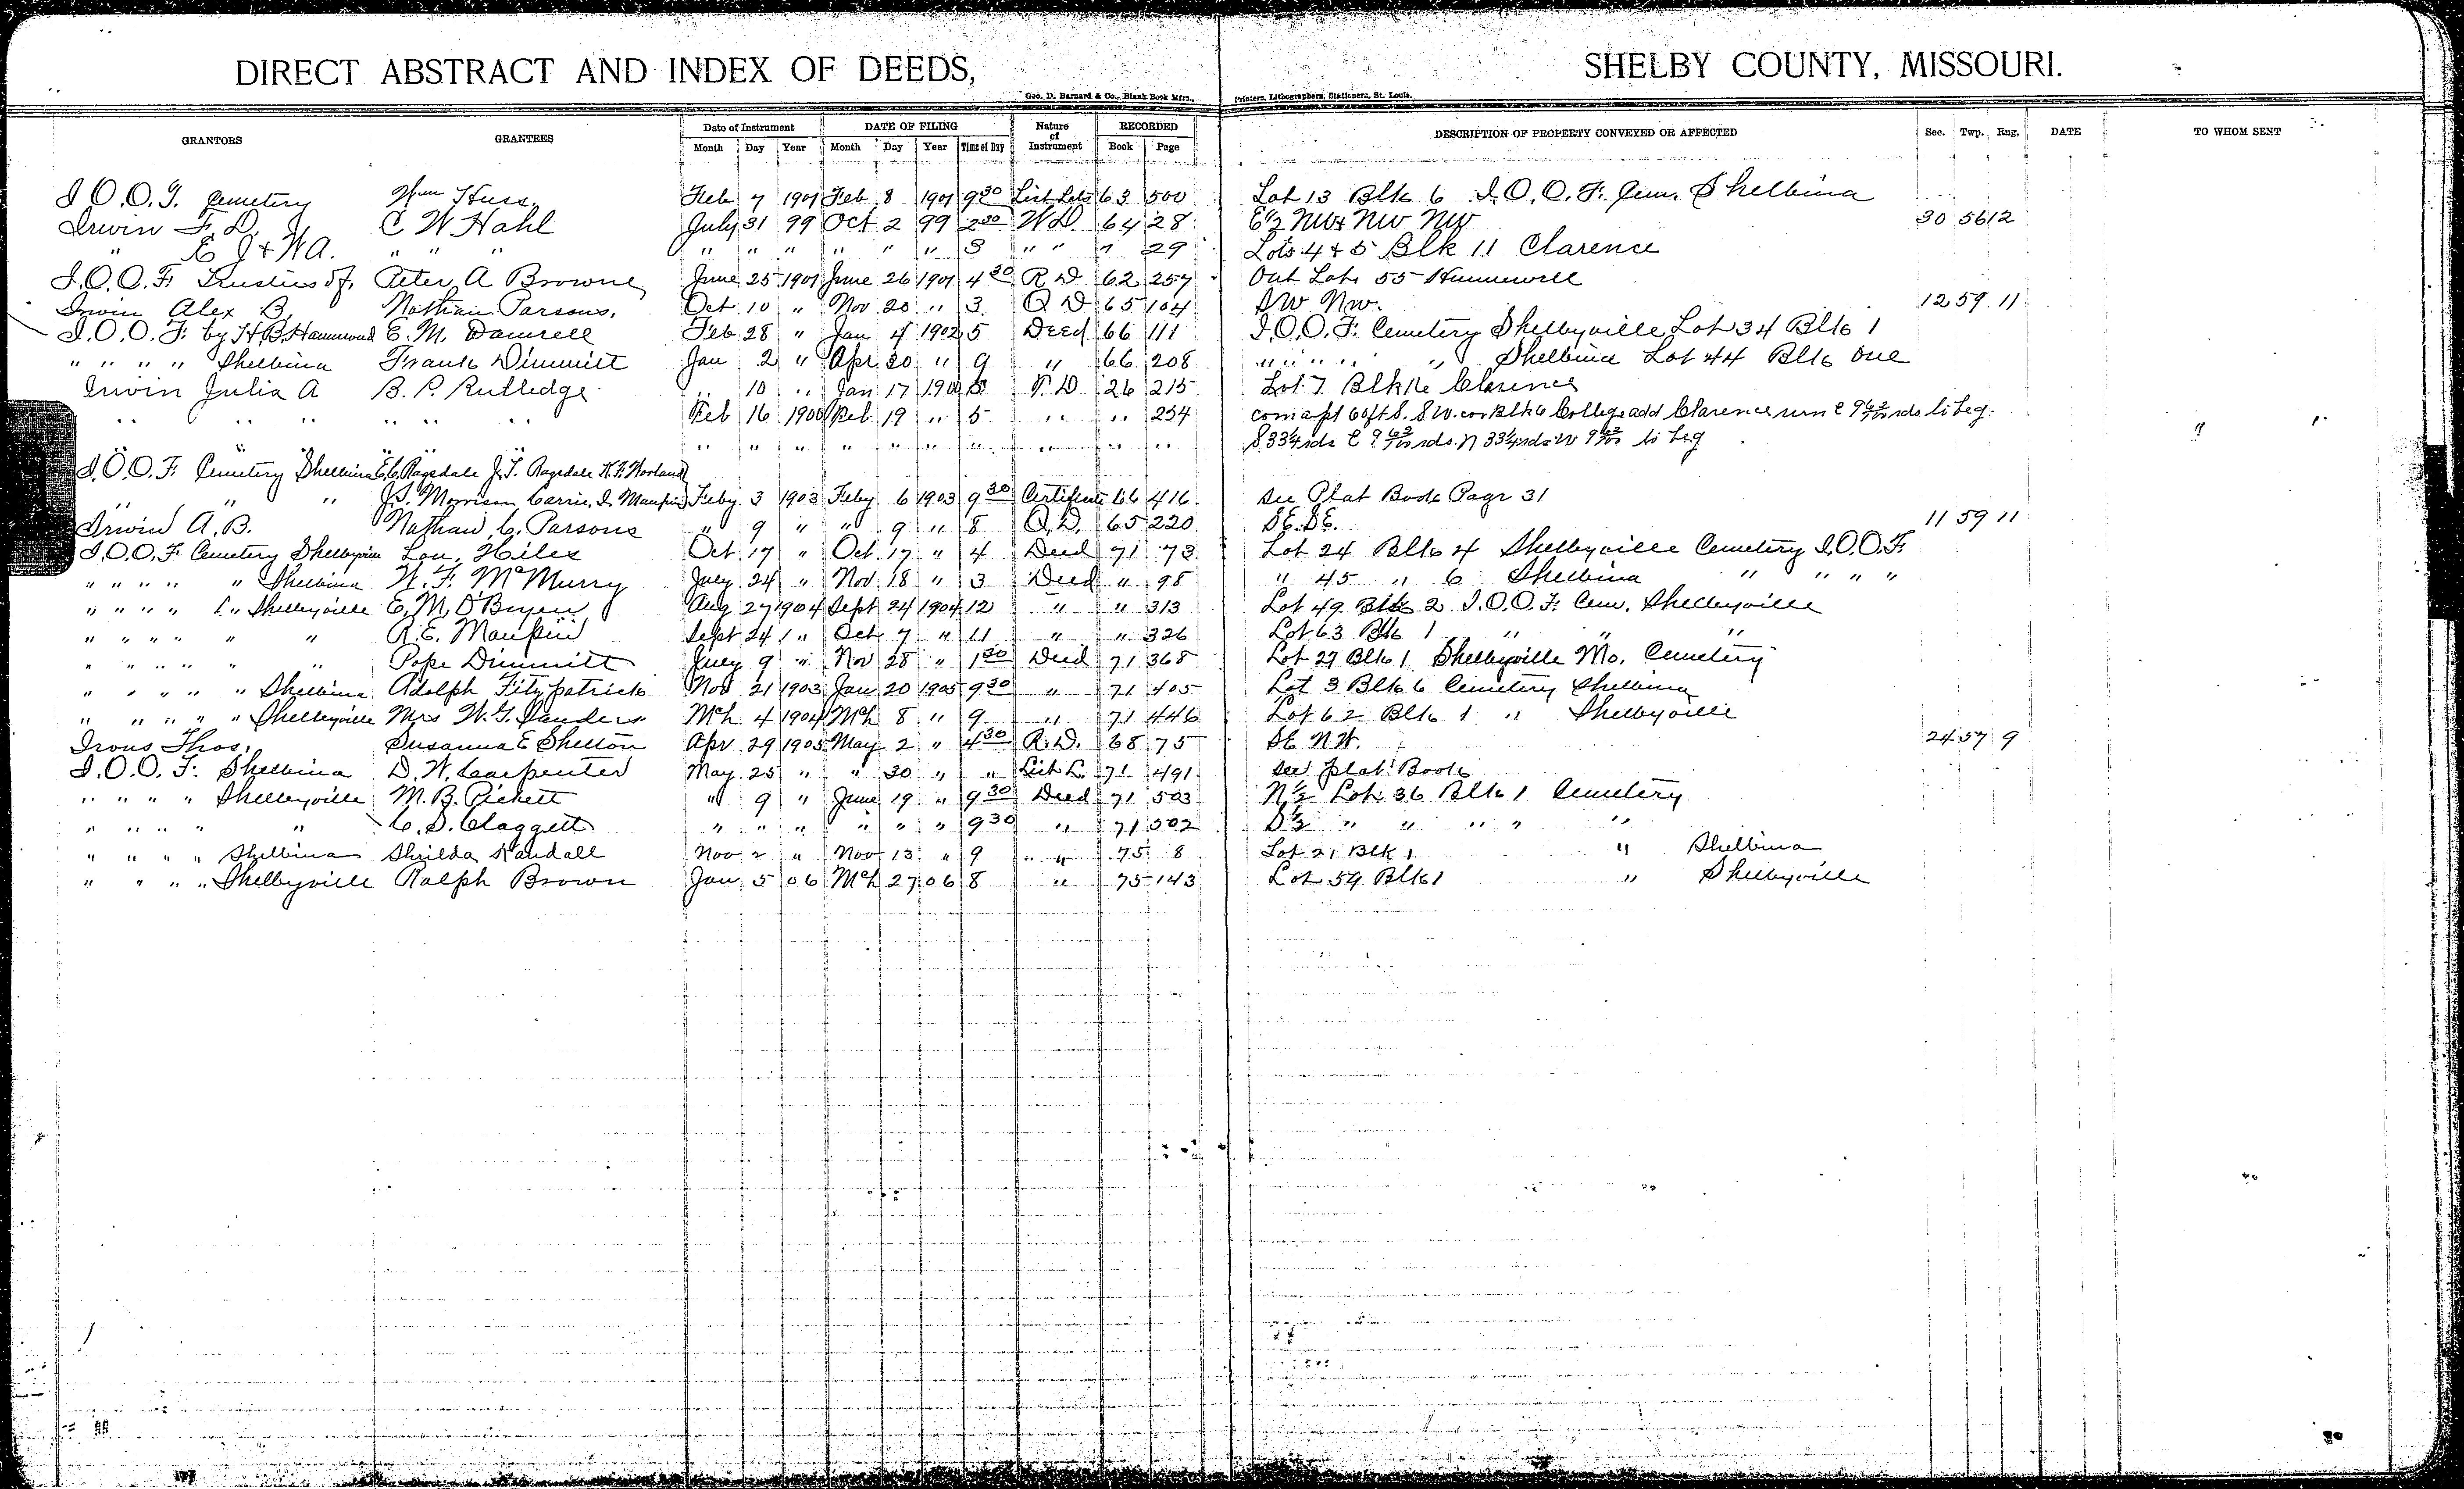 DIRECT ABSTRACT AND INDEX OF DEEDS, SHELBY COUNTY, MISSOURI.
Geo. D. Barnard & Co., Blank Book Mfrs., Printers, Lithographers, Stationers, St. Louis.
GRANTORS GRANTEES Date of Instrument DATE OF FILING Nature of Instrument RECORDED DESCRIPTION OF PROPERTY CONVEYED OR AFFECTED Sec. Twp. Rng. DATE TO WHOM SENT
Month Day Year Month Day Year Time of Day Book Page
I.O.O.F. Cemetery Wm Huss Feb 7 1901 Feb 8 1901 9 30 List Lots 63 500 Lot 13 Blk 6 I.O.O.F. Cem. Shelbina
Irwin F. D. C W Hahl July 31 99 Oct 2 99 2 30 W D. 64 28 E½ NW & NW NW 30 56 12
" E J & W A. " " " " " " " " " 3 " " " 29 Lots 4 & 5 Blk 11 Clarence
I.O.O.F. Trustees of. Peter A Browne June 25 1901 June 26 1901 4 30 R D 62 257 Out Lot 55 Hunnewell
Irwin Alex B. Nathan Parsons. Oct 10 " Nov 20 " 3 Q D 65 104 SW NW. 12 59 11
I.O.O.F. by H.B. Hammond E. M. Damrell Feb 28 " Jan 4 1902 5 Deed 66 111 I.O.O.F. Cemetery Shelbyville Lot 34 Blk 1
" " " " Shelbina Frank Dimmitt Jan 2 " Apr 20 " 9 " 66 208 " " " " " Shelbina Lot 44 Blk One
Irwin Julia A B. P. Rutledge " 10 " Jan 17 1900 T. D 26 215 Lot 7 Blk Clarence
" " " " " " Feb 16 1900 Feb 19 " 5 " " 254 com a pt 60 ft S. SW. cor Blk 6 College add Clarence run E 9 62/100 rds to beg.
" " " " " " " " " " " " " " " " S 33¼ rds E 9 62/100 rds. N 33¼ rds W 9 62/100 to beg
I.O.O.F. Cemetery Shelbina E.C. Ragsdale J.T. Ragsdale
" " " J.S. Morrison Carrie I. Maupin Feby 3 1903 Feby 6 1903 9 30 Certificate 66 416 See Plat Book Page 31
Irwin A. B. Nathan C. Parsons " 9 " " 9 " 8 Q. D. 65 220 SE. SE. 11 59 11
I.O.O.F. Cemetery Shelbyville Lou. Hiles Oct 17 " Oct 17 " 4 Deed 71 73 Lot 24 Blk 4 Shelbyville Cemetery I.O.O.F.
" " " " " Shelbina W. F. McMurry July 24 " Nov 18 " 3 Deed " 98 " 45 " 6 Shelbina " " " "
" " " " " Shelbyville E. M. O'Bryen Aug 27 1904 Sept 24 1904 12 " " 313 Lot 49 Blk 2 I.O.O.F. Cem. Shelbyville
" " " " " " R. E. Maupin Sept 24 " Oct 7 " 11 " " 326 Lot 63 Blk 1 " " "
" " " " " " Pope Dimmitt July 9 " Nov 28 " 1 30 Deed 71 368 Lot 27 Blk 1 Shelbyville Mo. Cemetery
" " " " " Shelbina Adolph Fitzpatrick Nov 21 1903 Jan 20 1905 9 30 " 71 405 Lot 3 Blk 6 Cemetery Shelbina
" " " " " Shelbyville Mrs W. T. Sanders Mch 4 1904 Mch 8 " 9 " 71 446 Lot 62 Blk 1 " Shelbyville
Irons Thos. Susanna E Shelton Apr 29 1905 May 2 " 4 30 R. D. 68 75 SE NW. 24 57 9
I.O.O.F. Shelbina D. W. Carpenter May 25 " " 30 " " List L. 71 491 See plat Book
" " " " Shelbyville M. B. Pickett " 9 " June 19 " 9 30 Deed 71 503 N½ Lot 36 Blk 1 Cemetery
" " " " " C. S. Claggett " " " " " " 9 30 " 71 502 S½ " " " " "
" " " " Shelbina Shrilda Randall Nov 2 " Nov 13 " 9 " 75 8 Lot 21 Blk 1 " Shelbina
" " " " Shelbyville Ralph Brown Jan 5 06 Mch 27 06 8 " 75 143 Lot 59 Blk 1 " Shelbyville